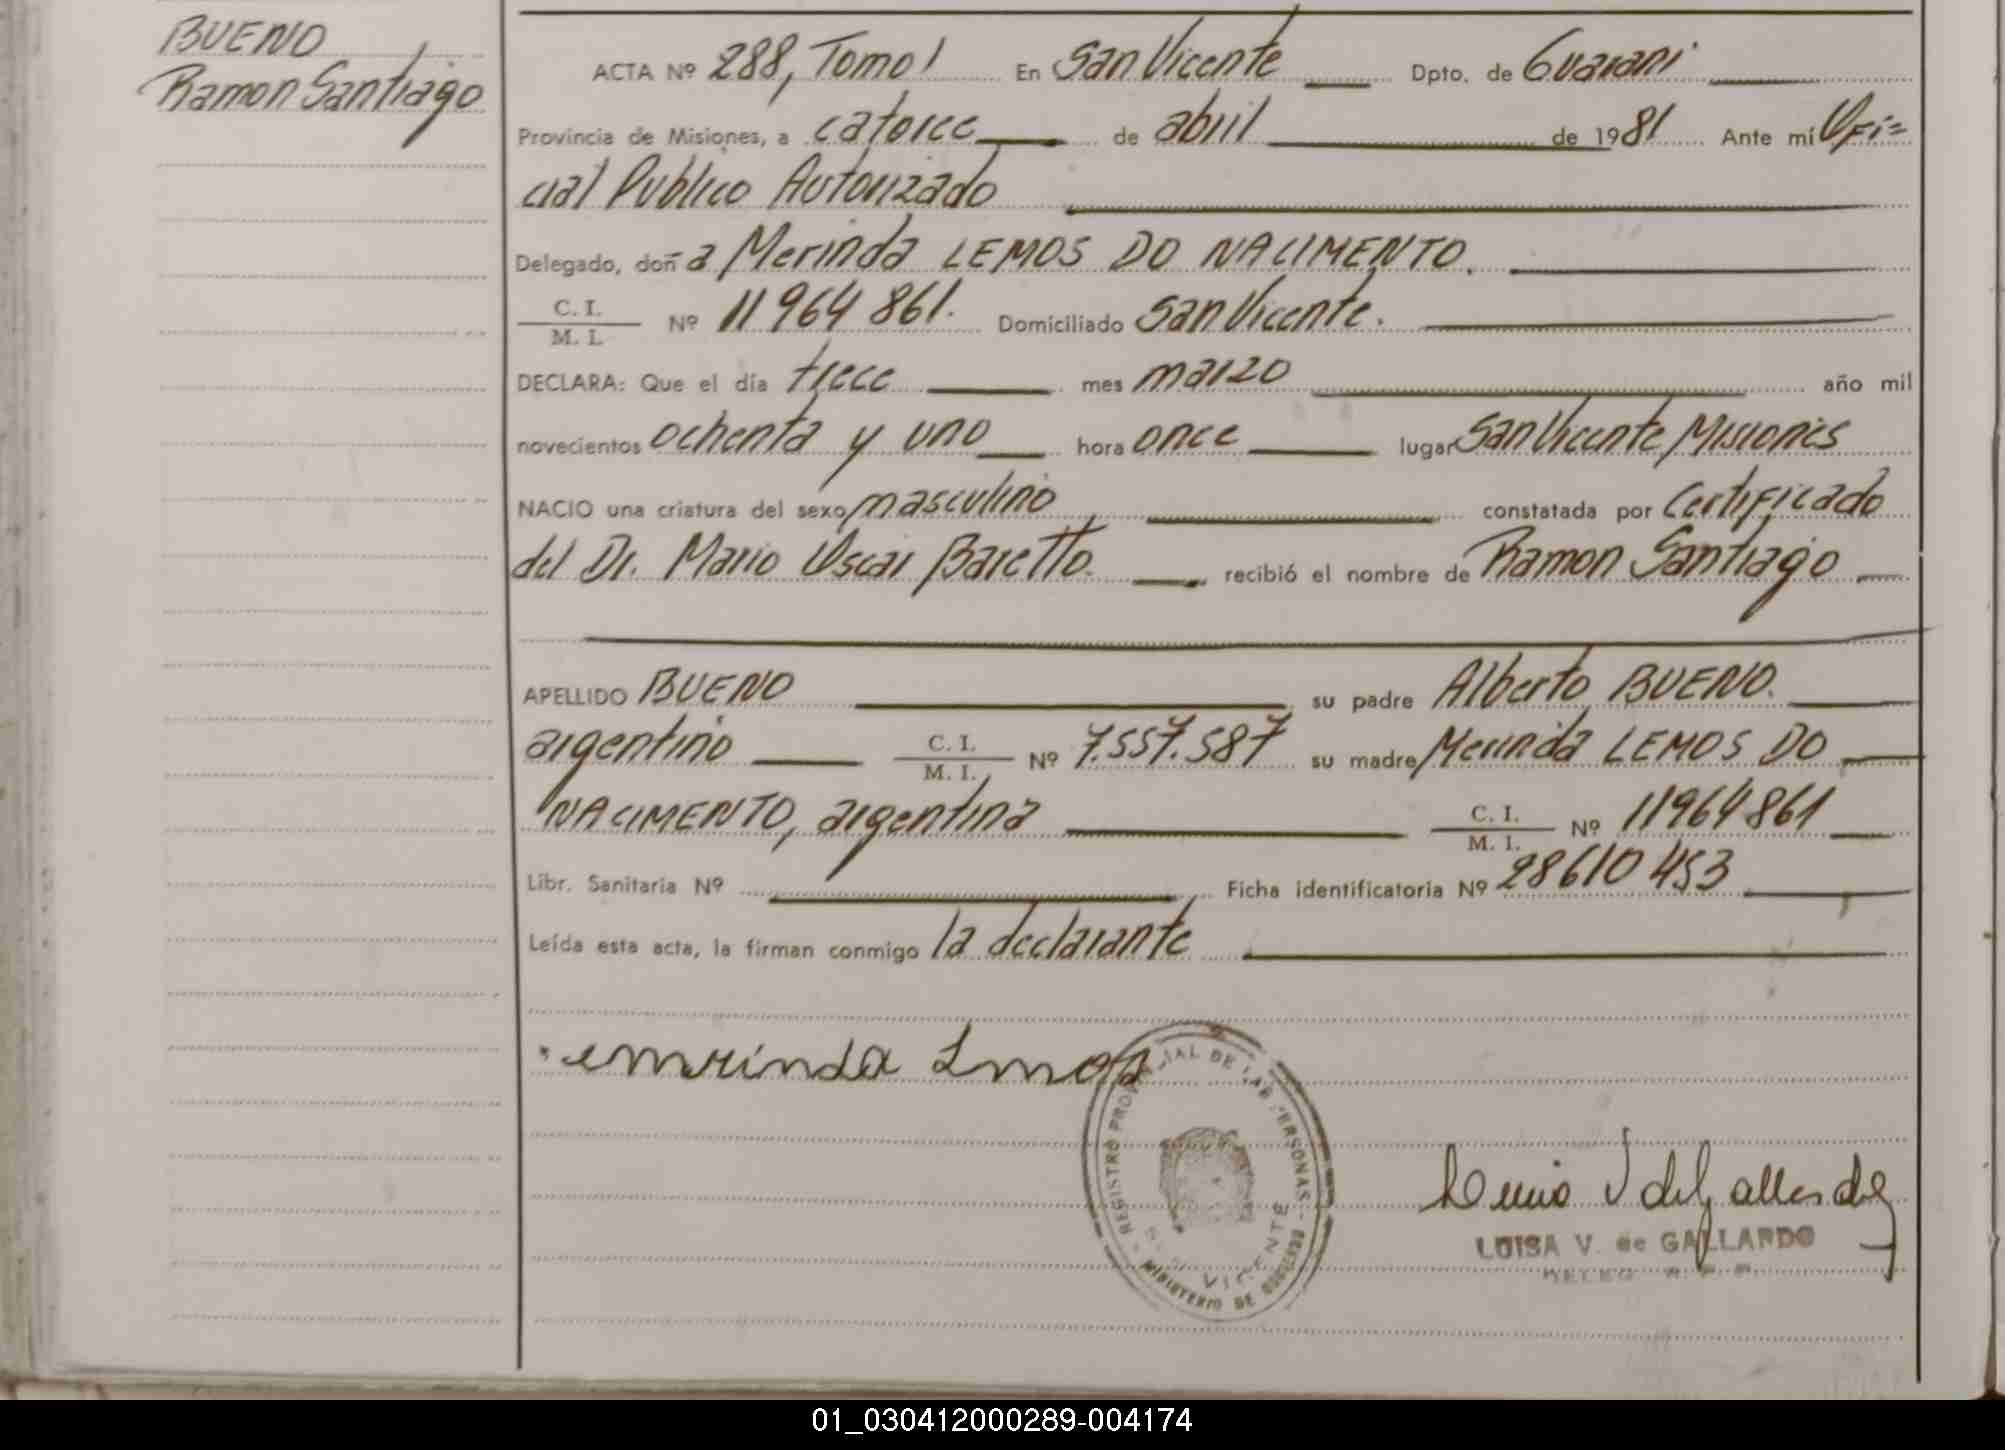 BUENO
Ramon Santiago
ACTA Nº 288, Tomo I En San Vicente Dpto. de Guarani
Provincia de Misiones, a catorce de abril de 1981 Ante mí Ofi=
cial Publico Autorizado
Delegado, doña Merinda LEMOS DO NACIMENTO.
C. I.
M. I. Nº 11 964 861. Domiciliado San Vicente.
DECLARA: Que el día trece mes marzo año mil
novecientos ochenta y uno hora once lugar San Vicente, Misiones
NACIO una criatura del sexo masculino constatada por Certificado
del Dr. Mario Oscar Baretto. recibió el nombre de Ramon Santiago
APELLIDO BUENO su padre Alberto BUENO.
argentino C. I.
M. I. Nº 7.557.587 su madre Merinda LEMOS DO
NACIMENTO, argentina C. I.
M. I. Nº 11964861
Libr. Sanitaria Nº Ficha identificatoria Nº 28610453
Leída esta acta, la firman conmigo la declarante
REGISTRO PROVINCIAL DE LAS PERSONAS
VICENTE
MINISTERIO DE GOBIERNO
LUISA V. de GALLARDO
01_030412000289-004174